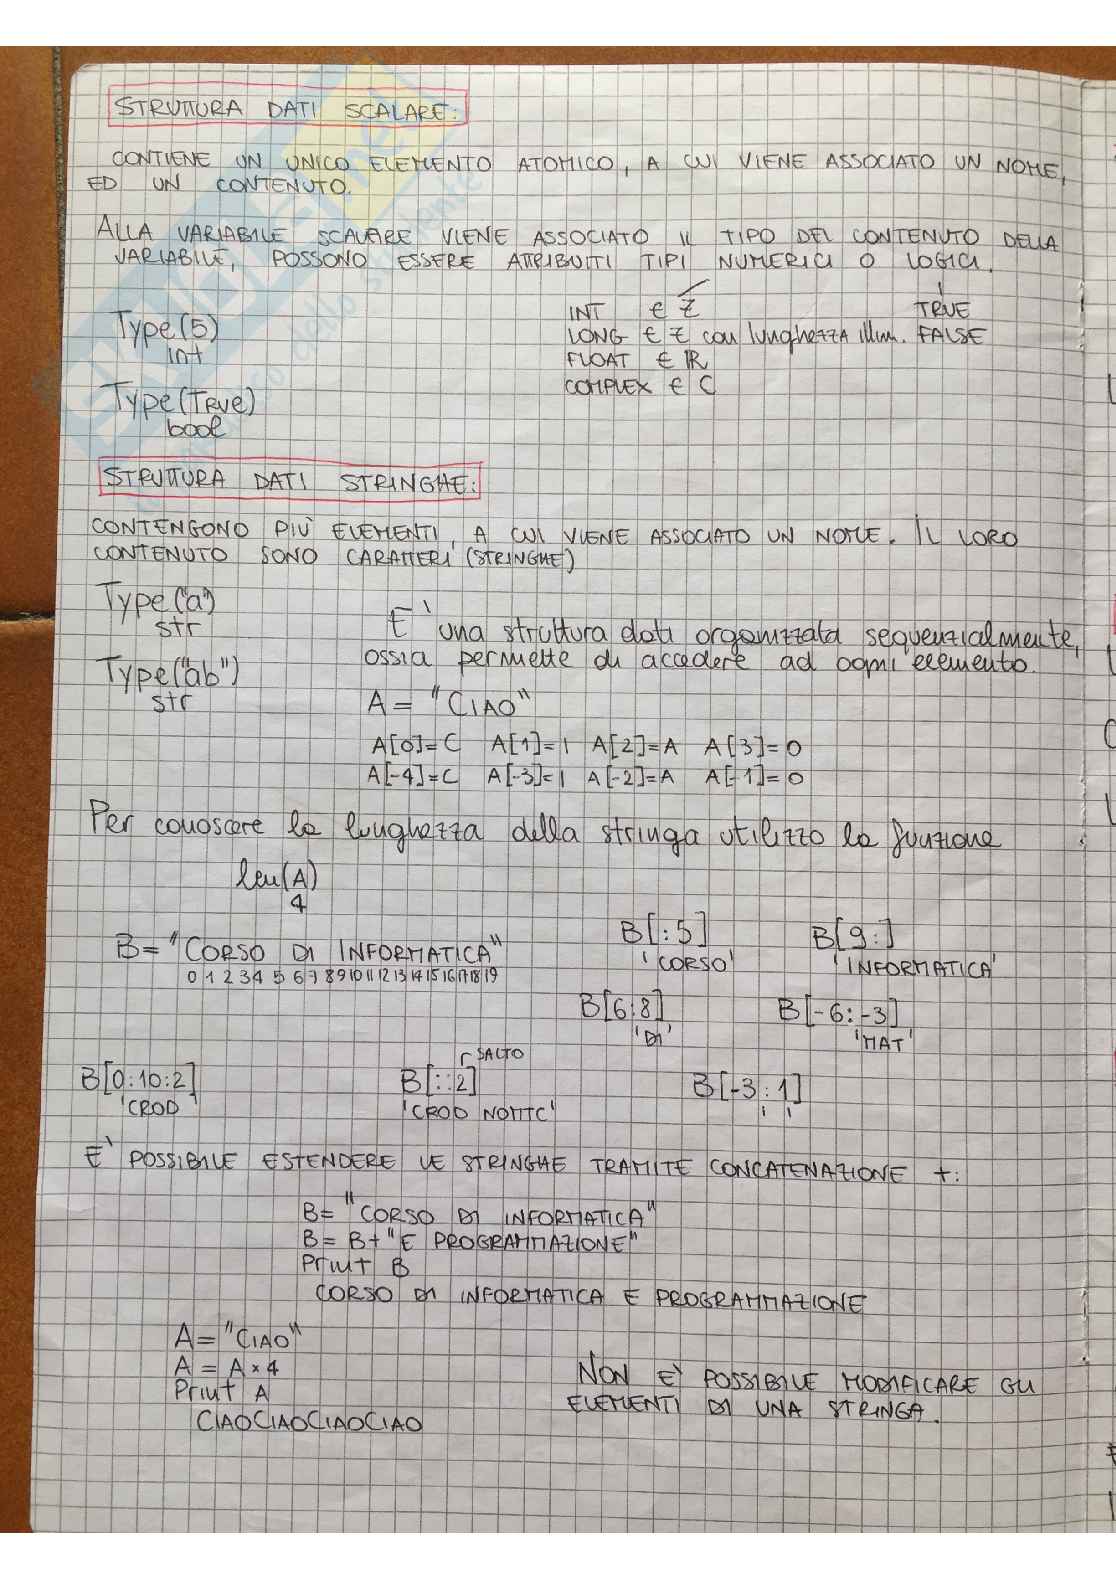 STRUTTURA DATI SCALARE:
CONTIENE UN UNICO ELEMENTO ATOMICO, A CUI VIENE ASSOCIATO UN NOME,
ED UN CONTENUTO.
ALLA VARIABILE SCALARE VIENE ASSOCIATO IL TIPO DEL CONTENUTO DELLA
VARIABILE, POSSONO ESSERE ATTRIBUITI TIPI NUMERICI O LOGICI.
INT ∈ Z TRUE
Type(5)
int
LONG ∈ Z con lunghezza illim. FALSE
FLOAT ∈ IR
COMPLEX ∈ C
Type(True)
bool
STRUTTURA DATI STRINGHE:
CONTENGONO PIÙ ELEMENTI, A CUI VIENE ASSOCIATO UN NOME. IL LORO
CONTENUTO SONO CARATTERI (STRINGHE)
Type("a")
str
E' una struttura dati organizzata sequenzialmente,
ossia permette di accedere ad ogni elemento.
Type("ab")
str
A = "CIAO"
A[0]=C A[1]=I A[2]=A A[3]=O
A[-4]=C A[-3]=I A[-2]=A A[-1]=O
Per conoscere la lunghezza della stringa utilizzo la funzione
len(A)
4
B= "CORSO DI INFORMATICA"
0 1 2 3 4 5 6 7 8 9 10 11 12 13 14 15 16 17 18 19
B[:5]
'CORSO'
B[9:]
'INFORMATICA'
B[6:8]
'DI'
B[-6:-3]
'MAT'
B[0:10:2]
'CROD '
SALTO
B[::2]
'CROD NOMTC'
B[-3:1]
' '
E' POSSIBILE ESTENDERE LE STRINGHE TRAMITE CONCATENAZIONE +:
B= "CORSO DI INFORMATICA"
B= B+"E PROGRAMMAZIONE"
Print B
CORSO DI INFORMATICA E PROGRAMMAZIONE
A= "CIAO"
A = A×4
Print A
CIAOCIAOCIAOCIAO
NON E' POSSIBILE MODIFICARE GLI
ELEMENTI DI UNA STRINGA.